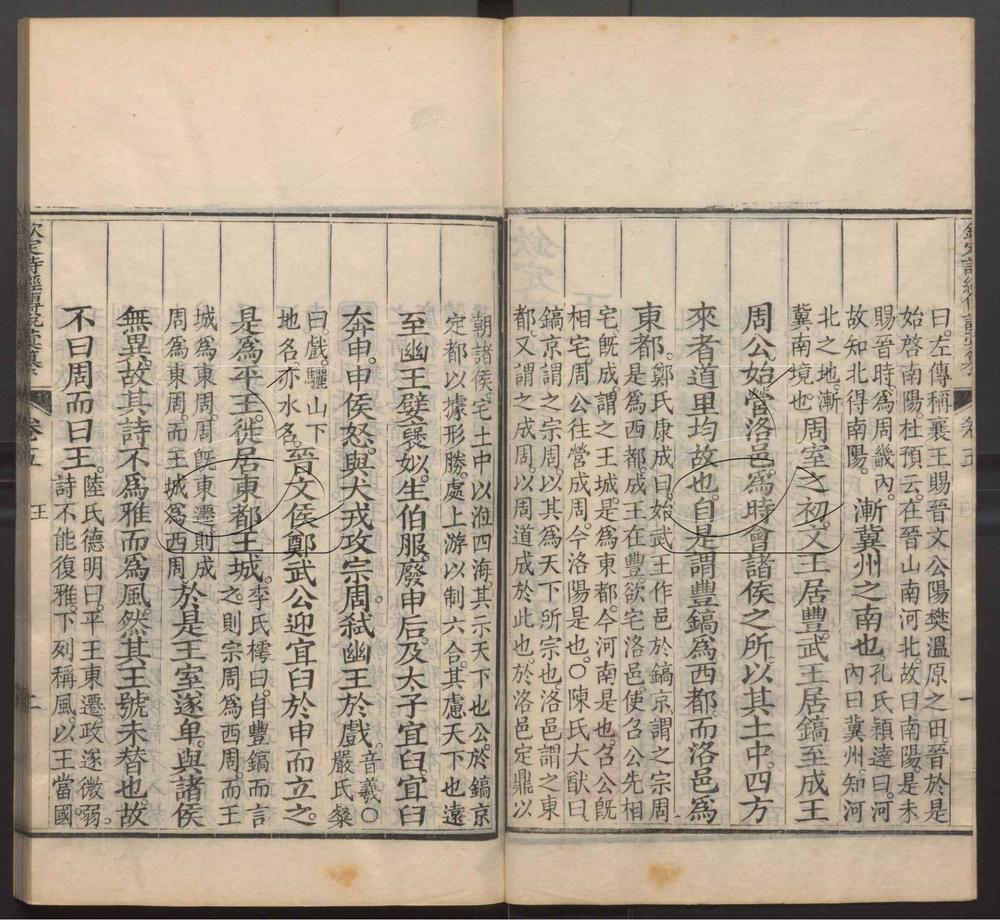 曰左傳稱襄王賜晉文公陽樊溫原之田晉於是
始啓南陽杜預云在晉山南河北故曰南陽是未
賜晉時爲周畿內
故知北得南陽
漸冀州之南也
孔氏穎達曰河
內曰冀州知河
北之地漸
冀南境也
周室之初文王居豐武王居鎬至成王
周公始營洛邑爲時會諸侯之所以其土中四方
來者道里均故也自是謂豐鎬爲西都而洛邑爲
東都
鄭氏康成曰始武王作邑於鎬京謂之宗周
是爲西都成王在豐欲宅洛邑使召公先相
宅旣成謂之王城是爲東都今河南是也召公旣
相宅周公往營成周今洛陽是也○陳氏大猷曰
鎬京謂之宗周以其爲天下所宗也洛邑謂之東
都又謂之成周以周道成於此也於洛邑定鼎以
朝諸侯宅土中以涖四海其示天下也公於鎬京
定都以據形勝處上游以制六合其慮天下也遠
至幽王嬖褒姒生伯服廢申后及太子宜臼宜臼
奔申申侯怒與犬戎攻宗周弒幽王於戲
音羲○
嚴氏粲
曰戲驪山下
地名亦水名
晉文侯鄭武公迎宜臼於申而立之
是爲平王徙居東都王城
李氏樗曰自豐鎬而言
之則宗周爲西周而王
城爲東周周旣東遷則成
周爲東周而王城爲西周
於是王室遂卑與諸侯
無異故其詩不爲雅而爲風然其王號未替也故
不曰周而曰王
陸氏德明曰平王東遷政遂微弱
詩不能復雅下列稱風以王當國
欽定詩經傳說彙纂
卷五
王
二
卷五